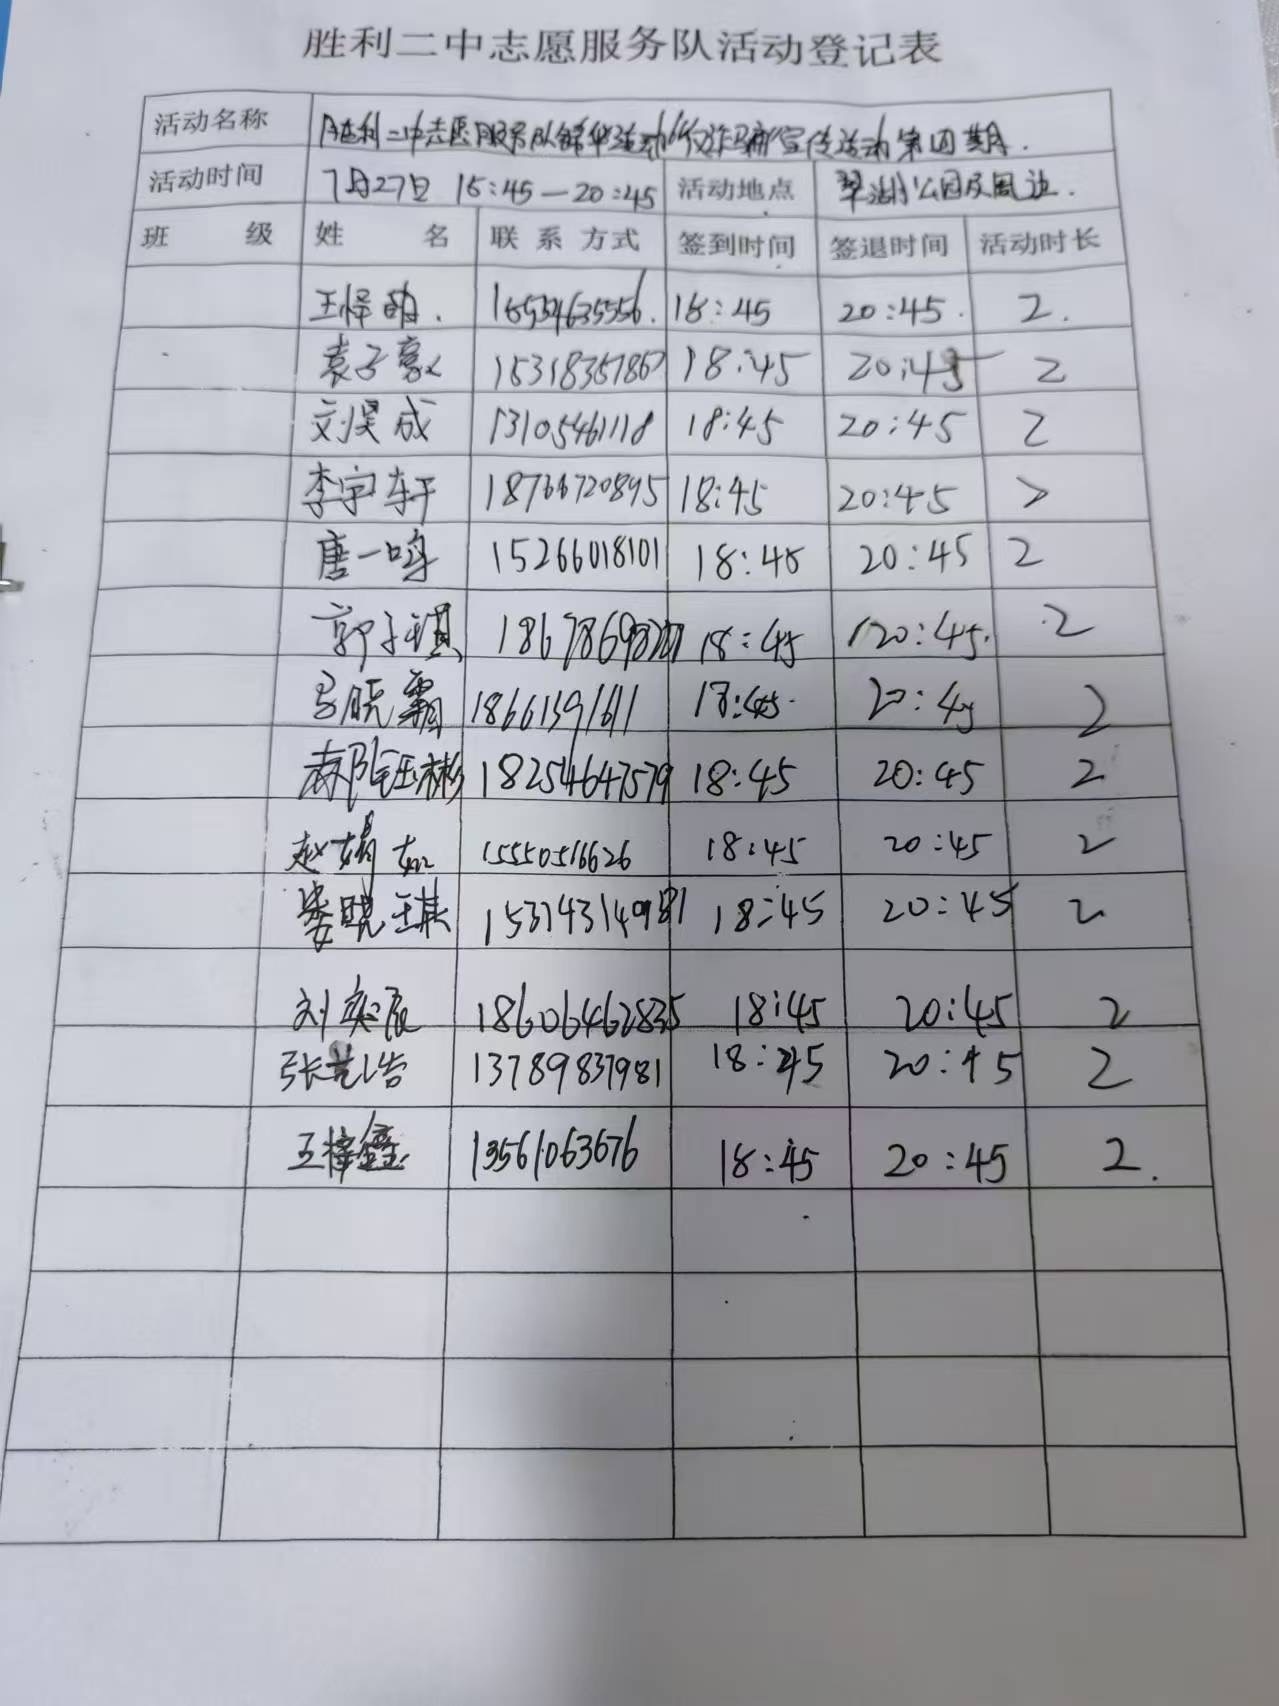 胜利二中志愿服务队活动登记表
活动名称 胜利二中志愿服务队 活动 反诈骗宣传活动第四期.
活动时间 7月27日 18:45—20:45 活动地点 翠湖公园及周边.
班 级 姓 名 联系方式 签到时间 签退时间 活动时长
王怿 18:45 20:45. 2.
袁子豪 15318357867 18:45 20:45 2
刘昊成 13105461118 18:45 20:45 2
李宇轩 18766720895 18:45 20:45 2
唐一鸣 15266018101 18:45 20:45 2
郭子琪 18:45 20:45. 2
马晓霜 18661391611 18:45. 20:45 2
钰彬 18254647579 18:45 20:45 2
赵婧如 15550516626 18:45 20:45 2
娄晓琪 18:45 20:45 2
刘奕辰 18606462835 18:45 20:45 2
张艺浩 13789837981 18:45 20:45 2
王梓鑫 13561063676 18:45 20:45 2.